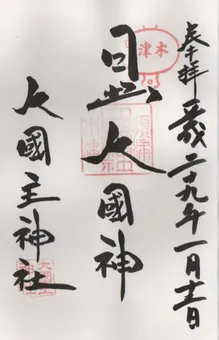 奉拝
平成二十九年一月
木津
日出大國神
大國主神社